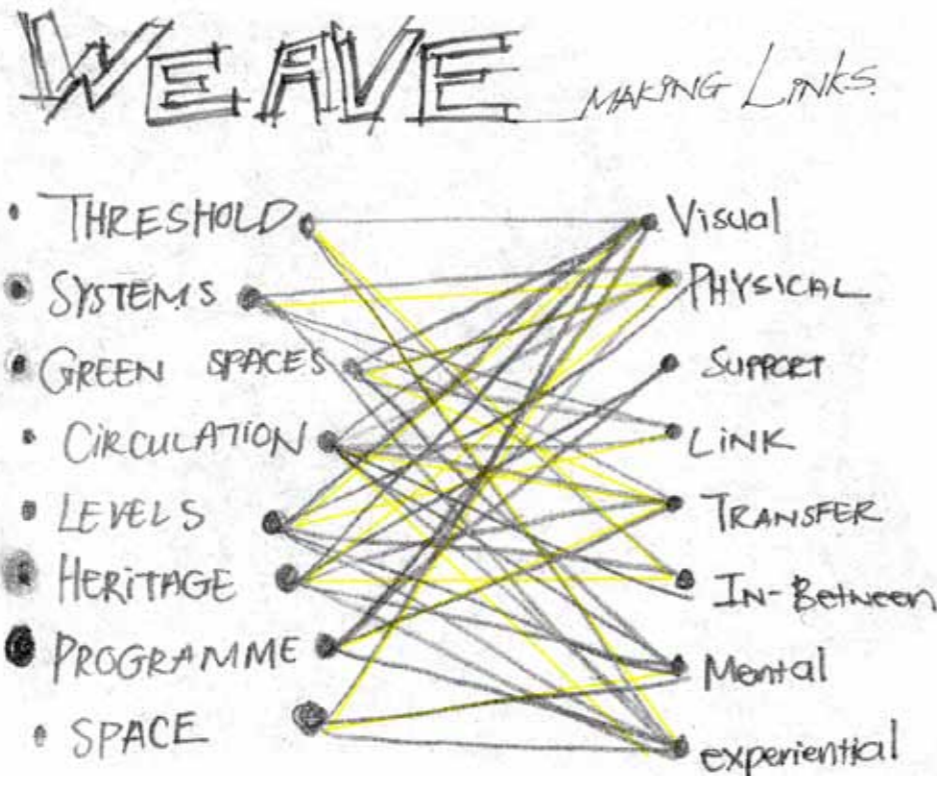 WEAVE MAKING LINKS.
THRESHOLD
SYSTEMS
GREEN SPACES
CIRCULATION
LEVELS
HERITAGE
PROGRAMME
SPACE
Visual
PHYSICAL
SUPPORT
LINK
TRANSFER
IN-Between
Mental
experiential